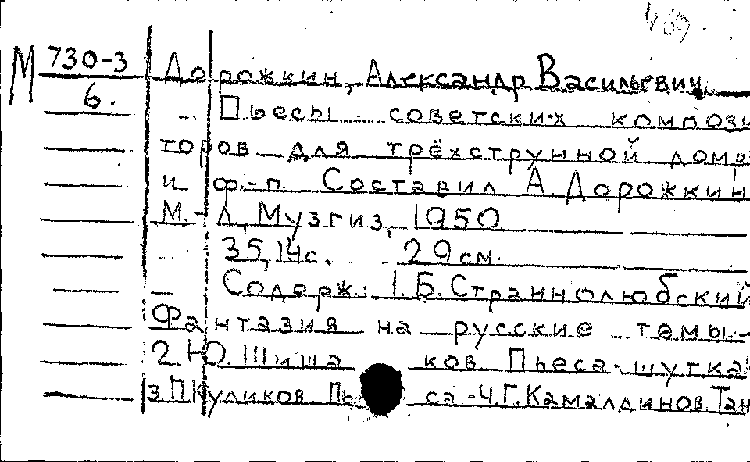 М 730-3 Дорожкин, Александр Васильевич.
6. Пьесы советских компози
торов для трёхструнной дом
и ф-п. Составил А. Дорожкин
М.-Л., Музгиз, 1950
35, 14 с. 29 см.
Содерж: 1. Б. Страннолюбский
Фантазия на русские темы.-
2. Ю. Шишаков. Пьеса-шутка
3. П. Куликов. Пьеса.-4. Г. Камалдинов. Тан